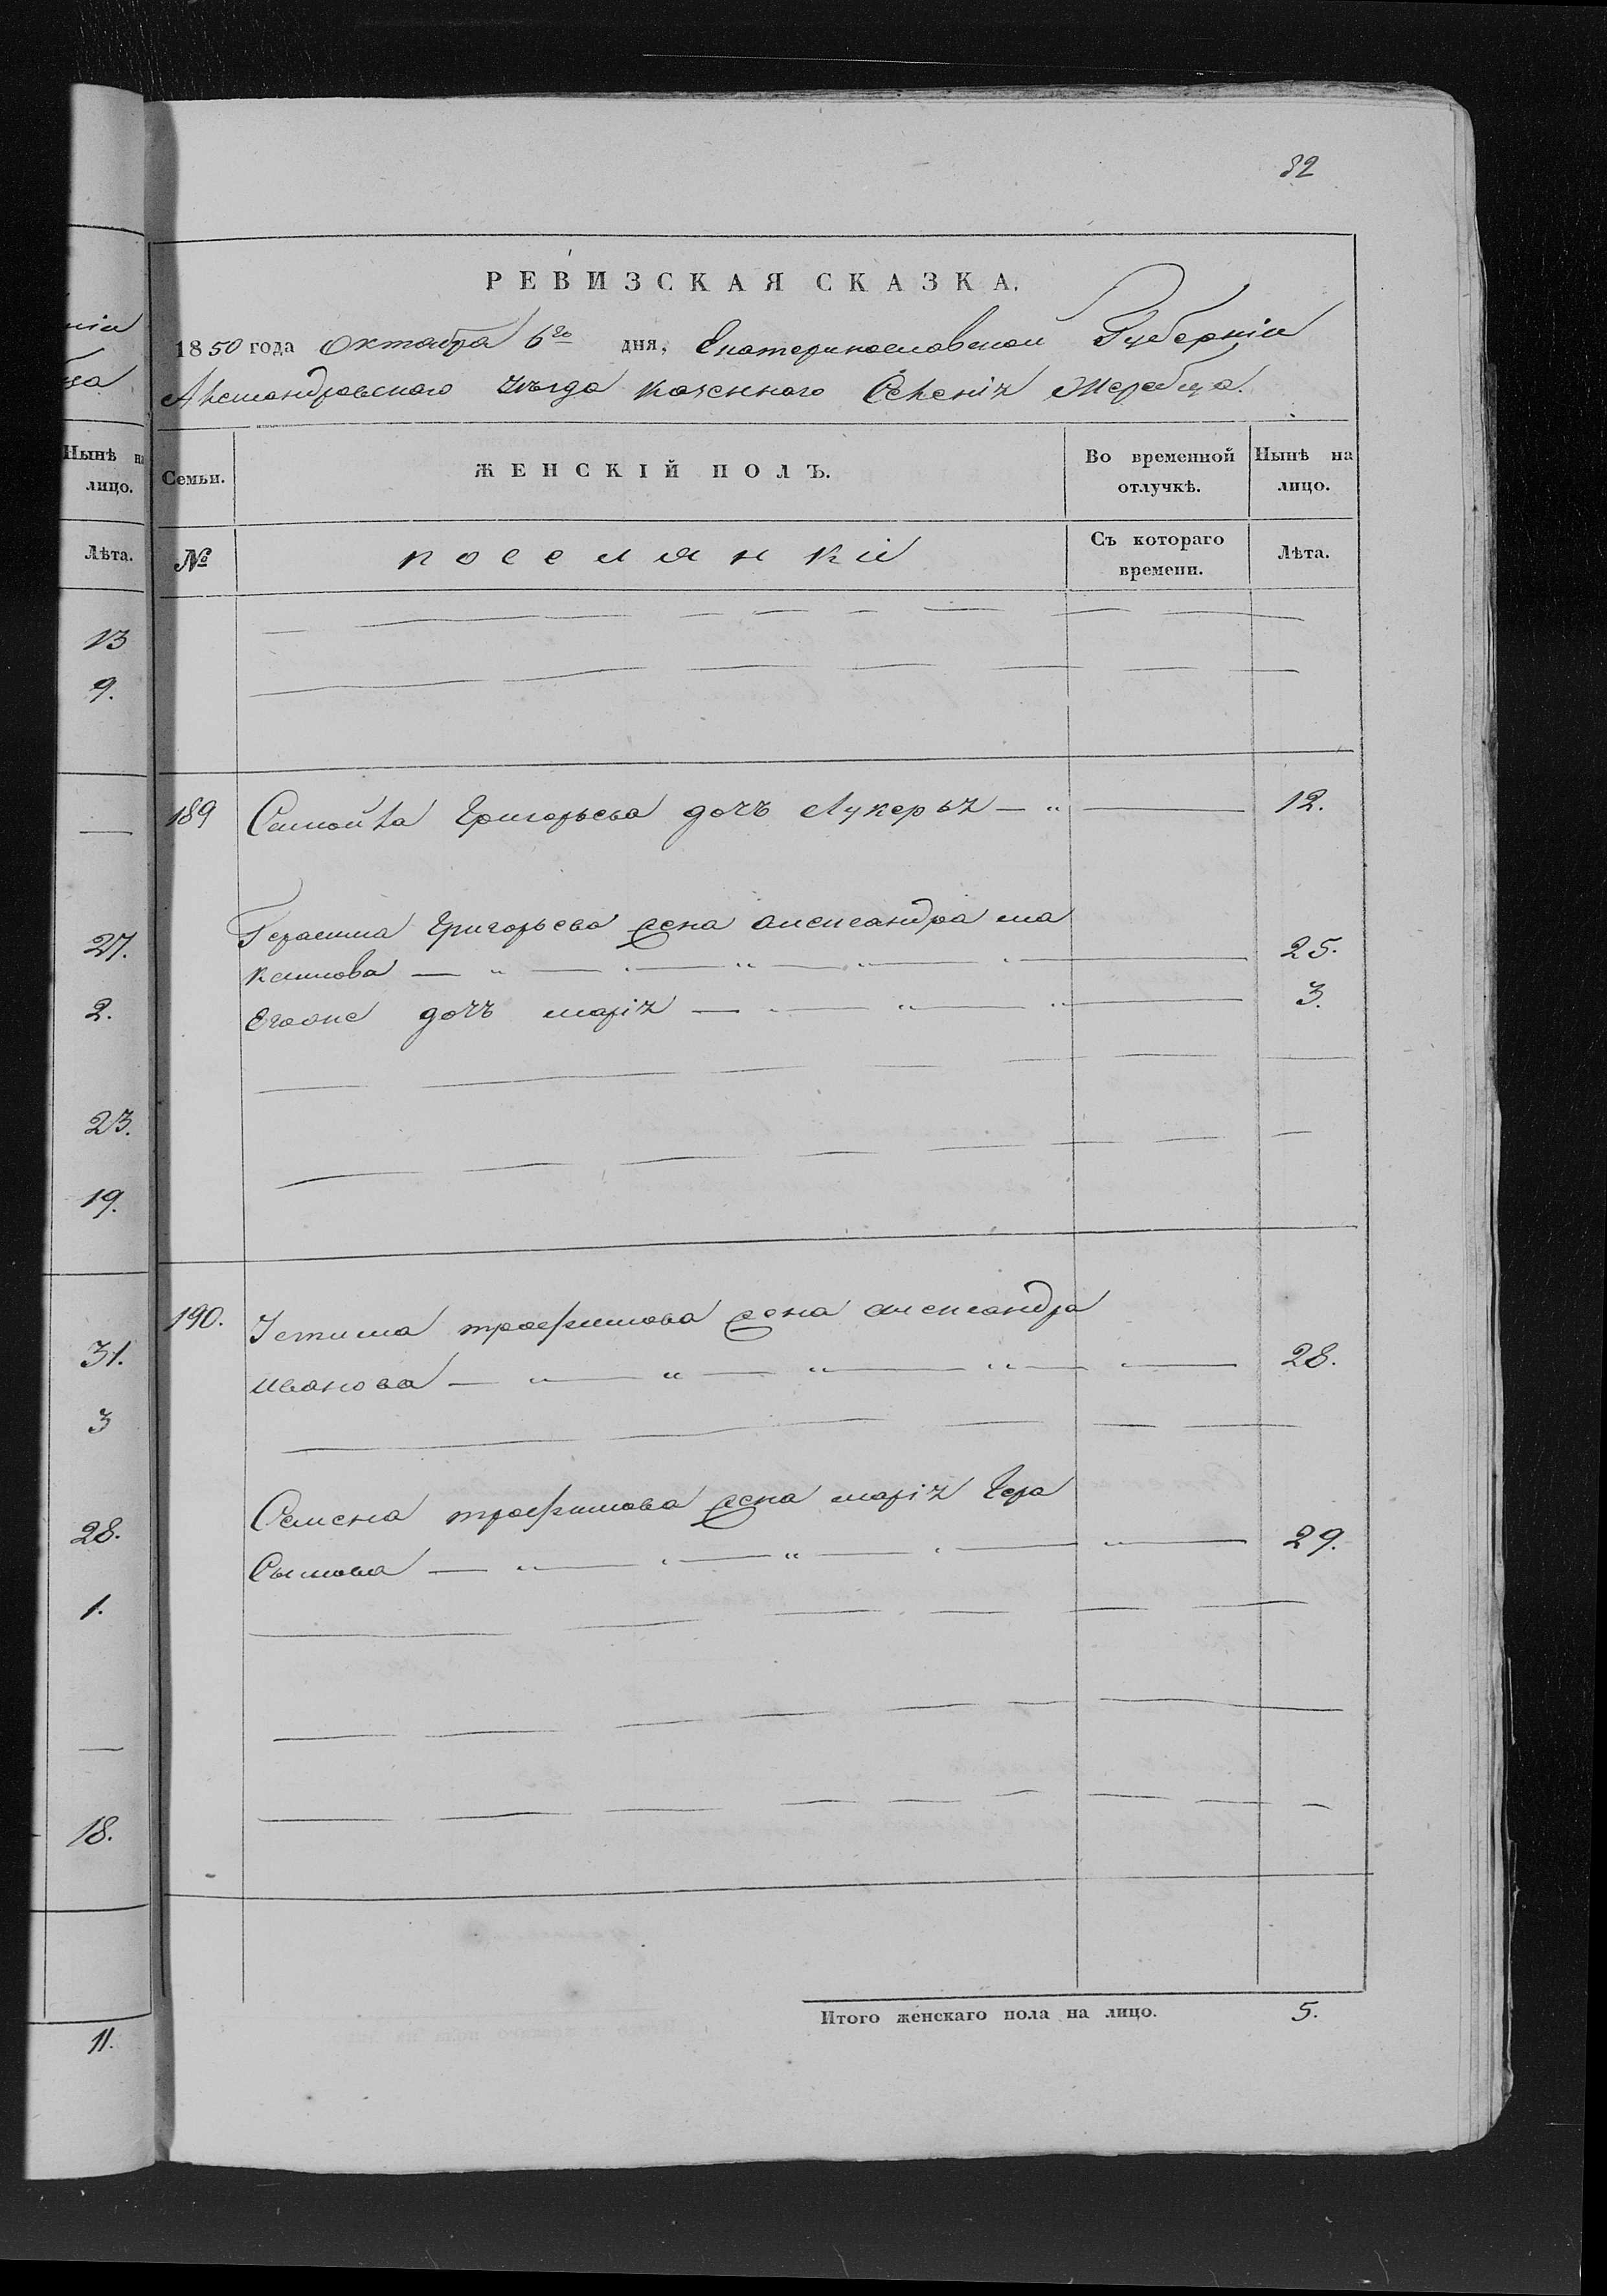 нiи
ца
Нынѣ на
лицо.
Лѣта.
13
9.
27.
2.
23.
19.
31.
3
28.
1.
18.
11.
82
РЕВИЗСКАЯ СКАЗКА.
1850 года Октября 6го дня, Екатеринославской Губернiи
Александровского уѣзда казенного Селенiя Жеребца.
Семьи. ЖЕНСКIЙ ПОЛЪ. Во временной отлучкѣ. Нынѣ на лицо.
№ поселянки Съ котораго времени. Лѣта.
189 Самойла Григорьева дочъ Лукерья 12.
Герасима Григорьева жена александра ма
кимова 25.
Егоже дочъ марiя 3.
190. Устима трофимова жена александра
иванова 28.
Семена трофимова жена марiя Гера
Симова 29.
Итого женскаго пола на лицо. 5.